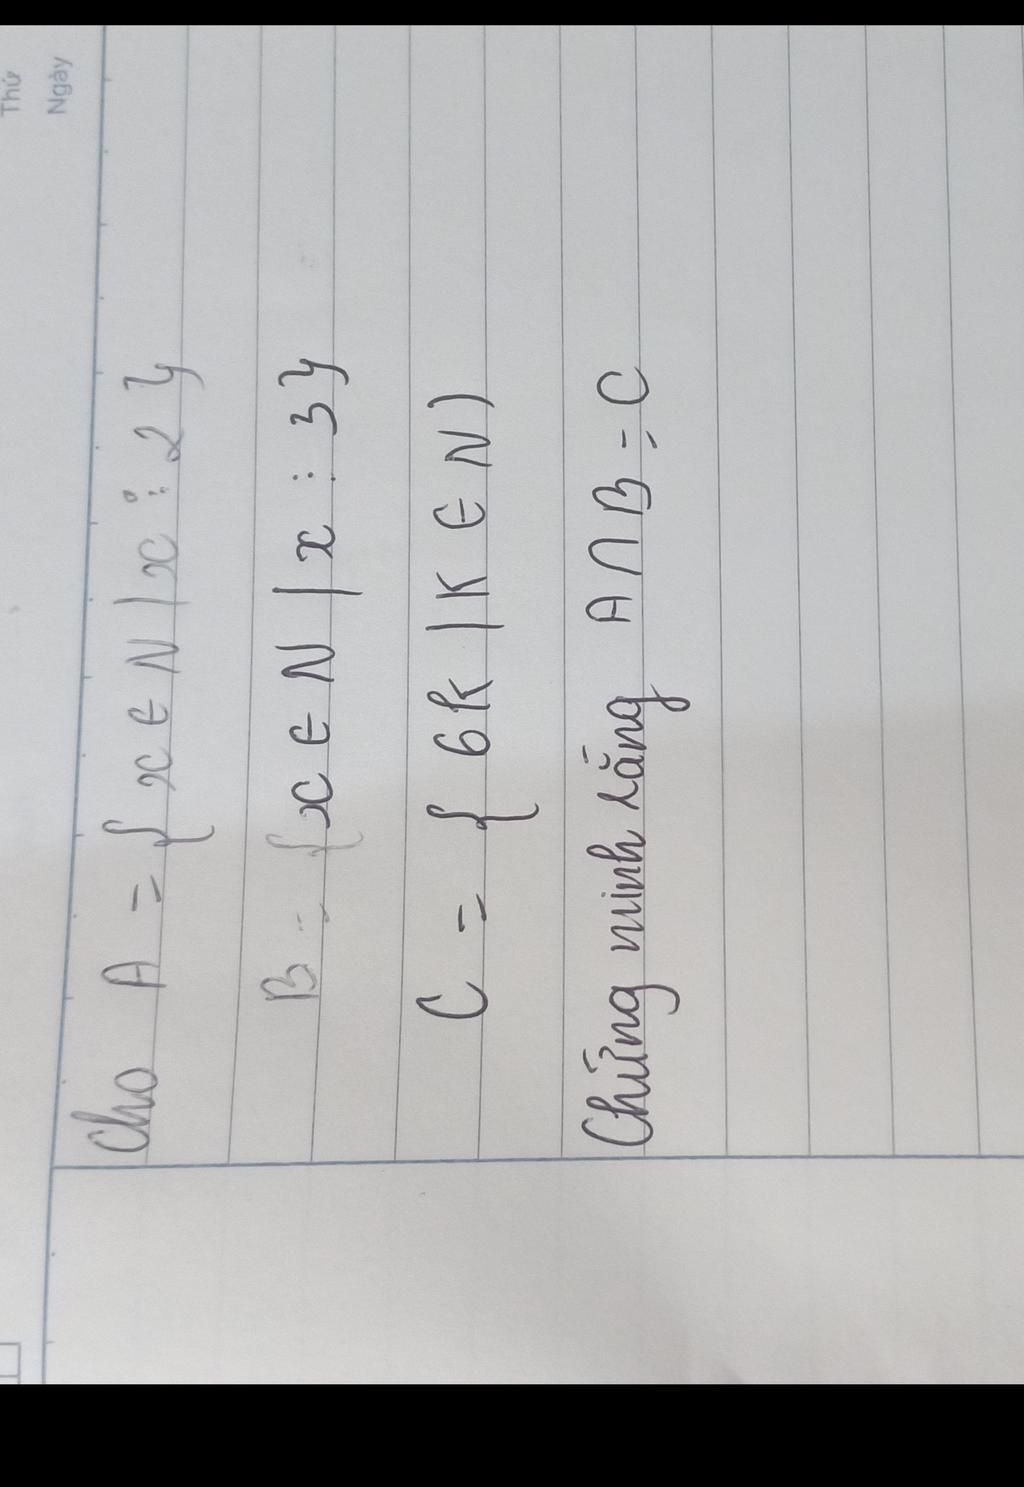 Thứ
Ngày
Cho A = { x ∈ N | x ⋮ 2 }
B = { x ∈ N | x ⋮ 3 }
C = { 6k | K ∈ N )
Chứng minh rằng A ∩ B = C